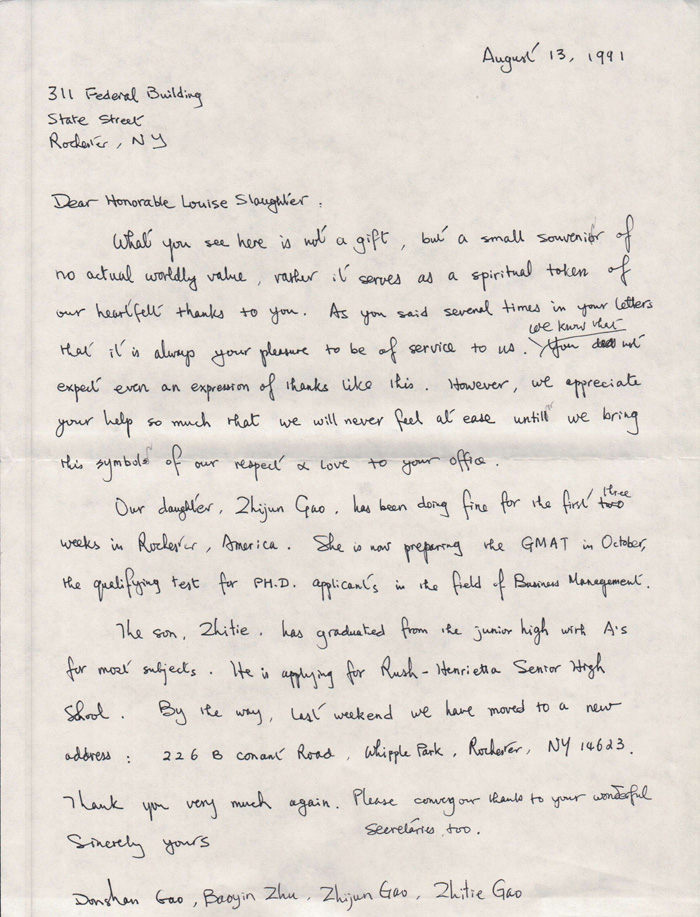 August 13, 1991
311 Federal Building
State Street
Rochester, NY
Dear Honorable Louise Slaughter:
What you see here is not a gift, but a small souvenir of
no actual worldly value, rather it serves as a spiritual token of
our heartfelt thanks to you. As you said several times in your letters
we know that
that it is always your pleasure to be of service to us. You does not
expect even an expression of thanks like this. However, we appreciate
your help so much that we will never feel at ease untill we bring
this symbol of our respect & love to your office.
Our daughter, Zhijun Gao, has been doing fine for the first two three
weeks in Rochester, America. She is now preparing the GMAT in October,
the qualifying test for PH.D. applicants in the field of Business Management.
The son, Zhitie, has graduated from the junior high with A's
for most subjects. He is applying for Rush-Henrietta Senior High
Shool. By the way, last weekend we have moved to a new
address: 226 B Conant Road, Whipple Park, Rochester, NY 14623.
Thank you very much again. Please convey our thanks to your wonderful
secretaries, too.
Sincerely yours
Donshan Gao, Baoyin Zhu, Zhijun Gao, Zhitie Gao